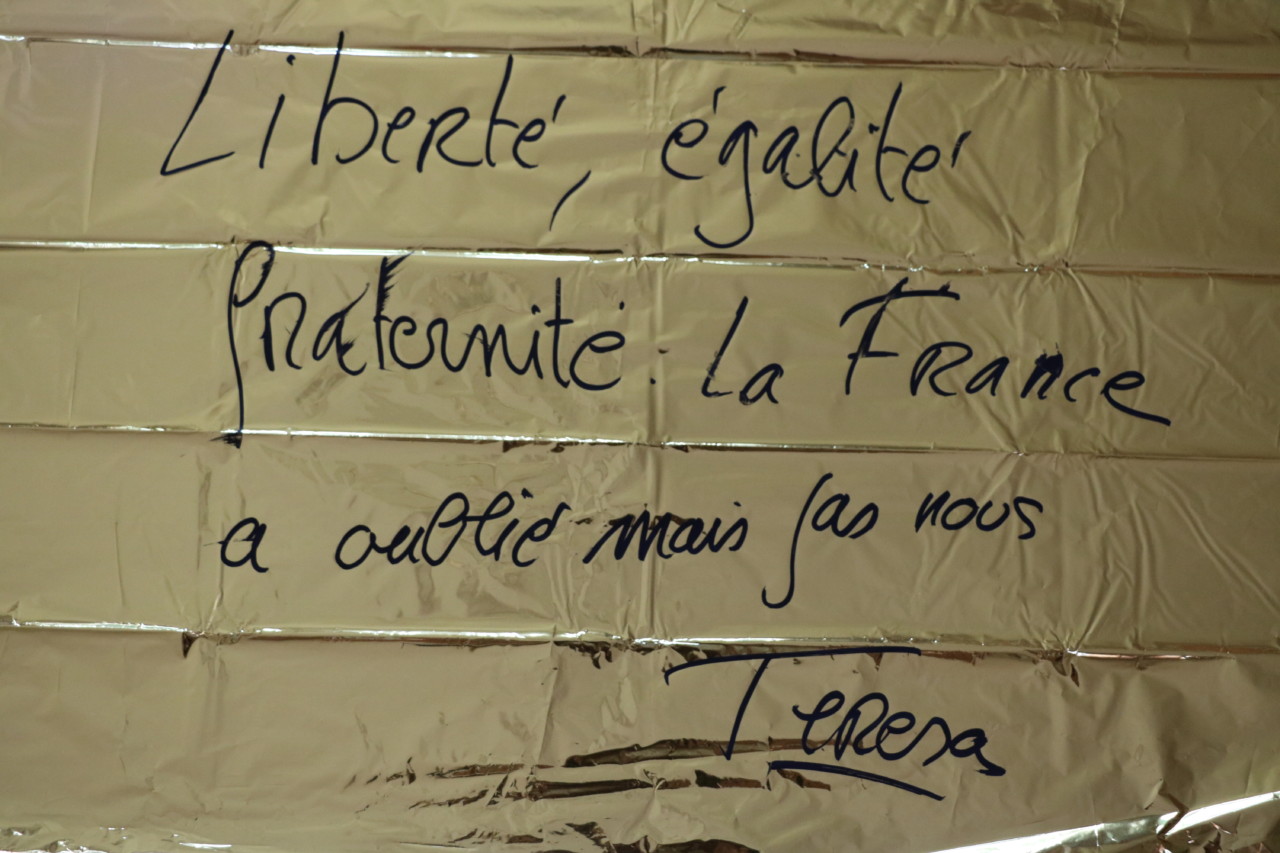 Liberté, égalité
fraternité. La France
a oublié mais pas nous
Teresa